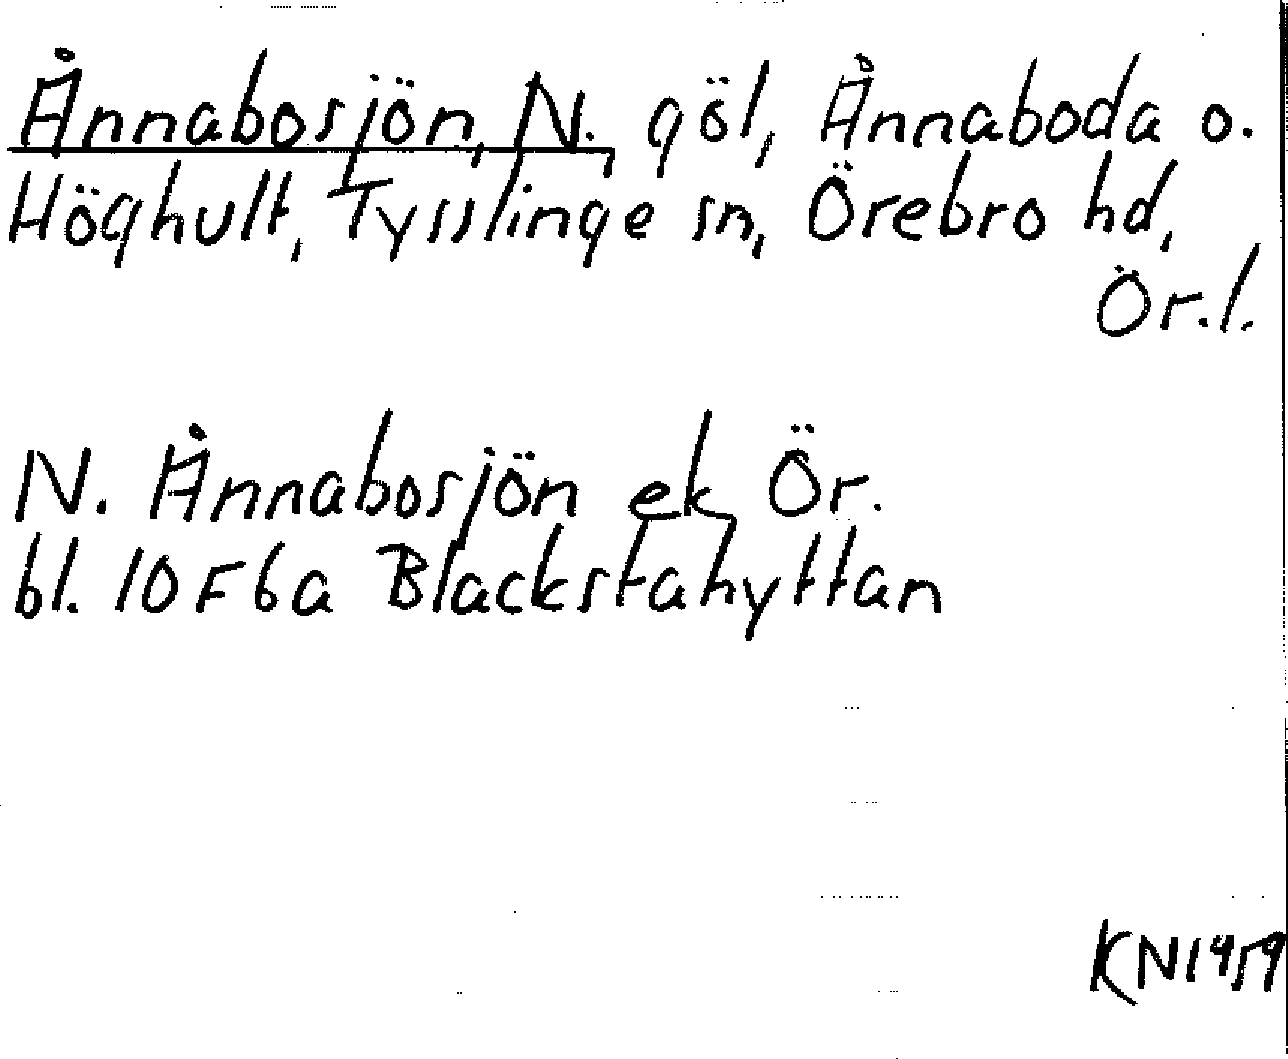 Ånnabosjön, N., göl, Ånnaboda o.
Höghult, Tysslinge sn, Örebro hd,
Ör. l.
N. Ånnabosjön ek Ör.
bl. 10 F 6a Blackstahyttan
KN 1959